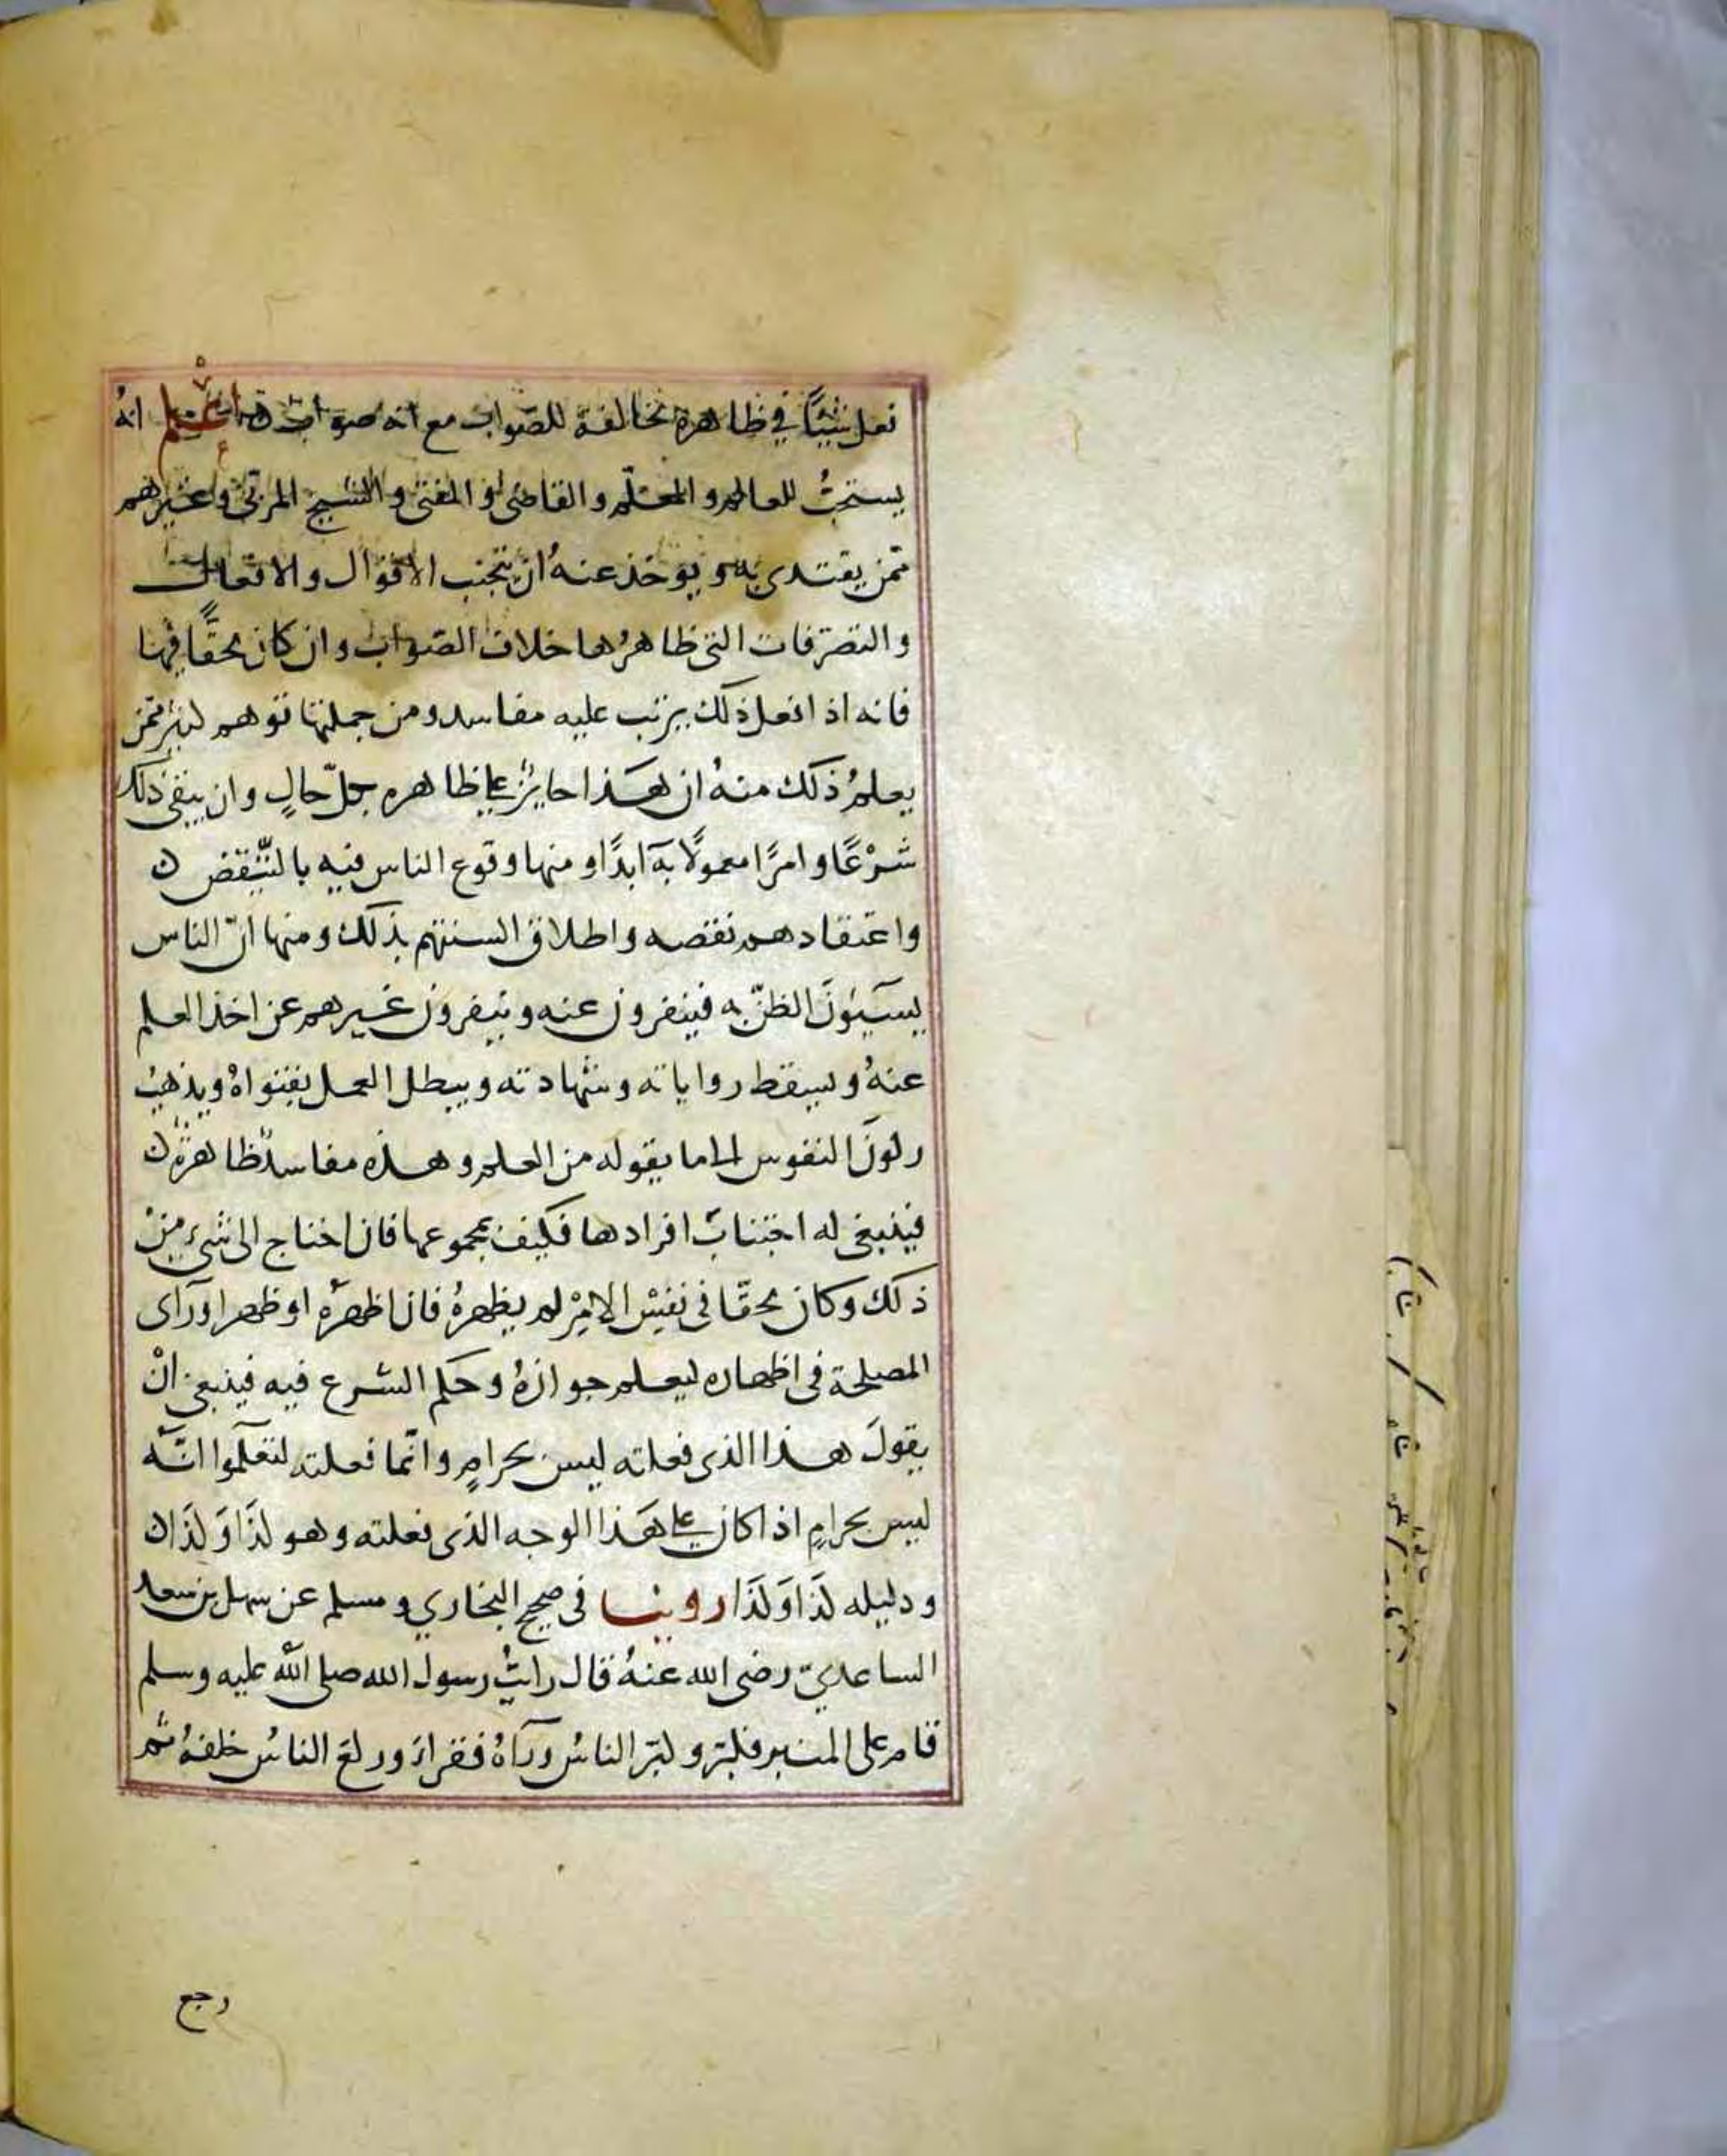 فعل شيئًا في ظاهره مخالفة للصواب مع انه صواب اعلم انهُ
يستحبُّ للعالم والمعلّم والقاضى والمفتى والشيخ المربّى وغيرهم
ممّن يقتدى به ويؤخذ عنهُ ان يجتنب الاقوال والافعال
والتصرّفات التى ظاهرُها خلاف الصّواب وان كان محقًّا فيها
فانه اذا فعل ذلك يترتب عليه مفاسد ومن جملتها توهم كثير ممّن
يعلمُ ذلك منهُ ان هَذا جايزٌ على ظاهره بكلّ حالٍ وان يبقى ذلك
شَرْعًا وامرًا معمولًا به ابدًا ومنها وقوع الناس فيه بالتّنقّص
واعتقادهم نقصه واطلاق السنتهم بذلك ومنها انّ الناس
يسيئونَ الظنّ به فينفرون عنه وينفرون غيرهم عن اخذ العلم
عنهُ ويسقط رواياته وشهادته ويبطل العمل بفتواهُ ويذهبُ
ركونَ النفوس الى ما يقوله من العلم وهذه مفاسدٌ ظاهرةٌ
فينبغى له اجتنابُ افرادها فكيف بمجموعها فان احتاج الى شىءٍ منْ
ذلك وكان محقّا فى نفسْ الامْرِ لم يظهرهُ فان اظهرَهُ او ظهر او رَآى
المصلحة فى اظهاره ليعلم جوازهُ وحكم الشرع فيه فينبغى انْ
يقولَ هذا الذى فعلته ليس بحرامٍ وانّما فعلته لتعلَموا انّه
ليس بحرامٍ اذا كان على هَذا الوجه الذى فعلته وهو كذَا وَكذَا
ودليله كذَا وَكذَا روينا فى صحيح البخاري ومسلم عن سهل بن سعد
الساعديّ رضى الله عنهُ قال رايتُ رسول الله صلى الله عليه وسلم
قام على المنبر فكبّر وكبّر الناسُ ورآهُ فقراَ وركع الناسُ خلفهُ ثم
رجع